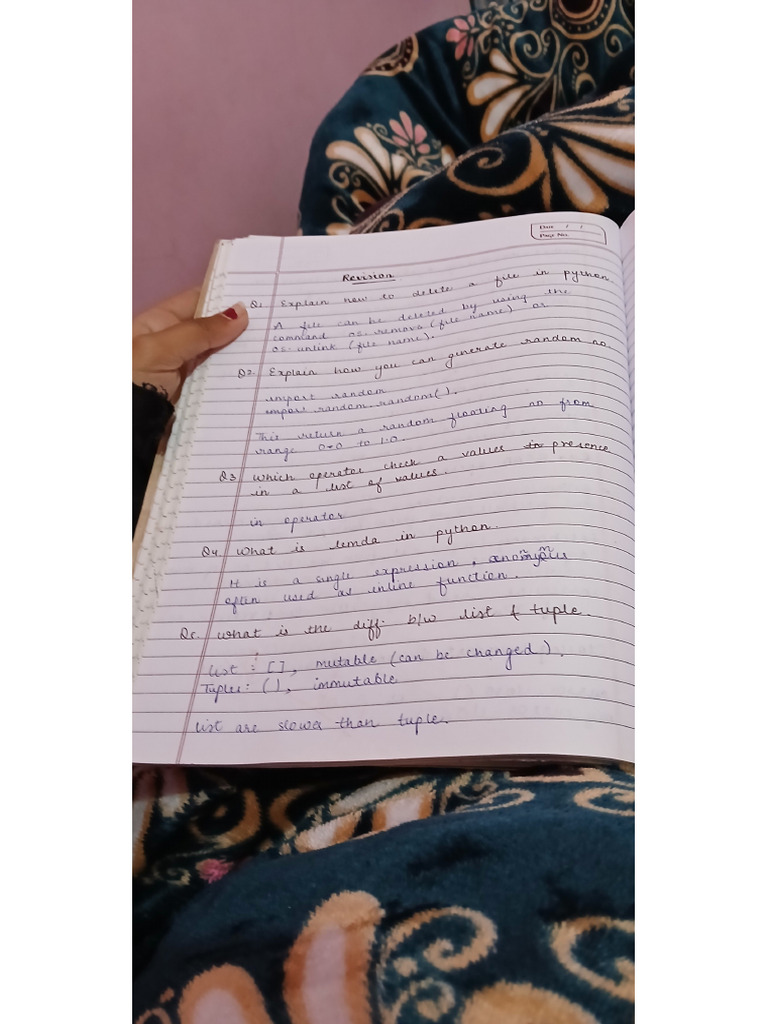 Date / /
Page No.
Revision
Q1 Explain how to delete a file in python.
A file can be deleted by using the
command os.remove (file name) or
os.unlink (file name).
Q2. Explain how you can generate random no.
import random
import random.random().
This return a random floating no from
range 0.0 to 1.0.
Q3 which operator check a values in presence
in a list of values.
in operator
Q4 What is lemda in python.
It is a single expression,
often used as inline function.
Q5. what is the diff. b/w list & tuple.
list : [ ], mutable (can be changed).
Tuples: ( ), immutable
list are slower than tuple.